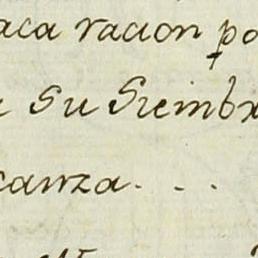 aca racion po
su Siembr
canza. . .